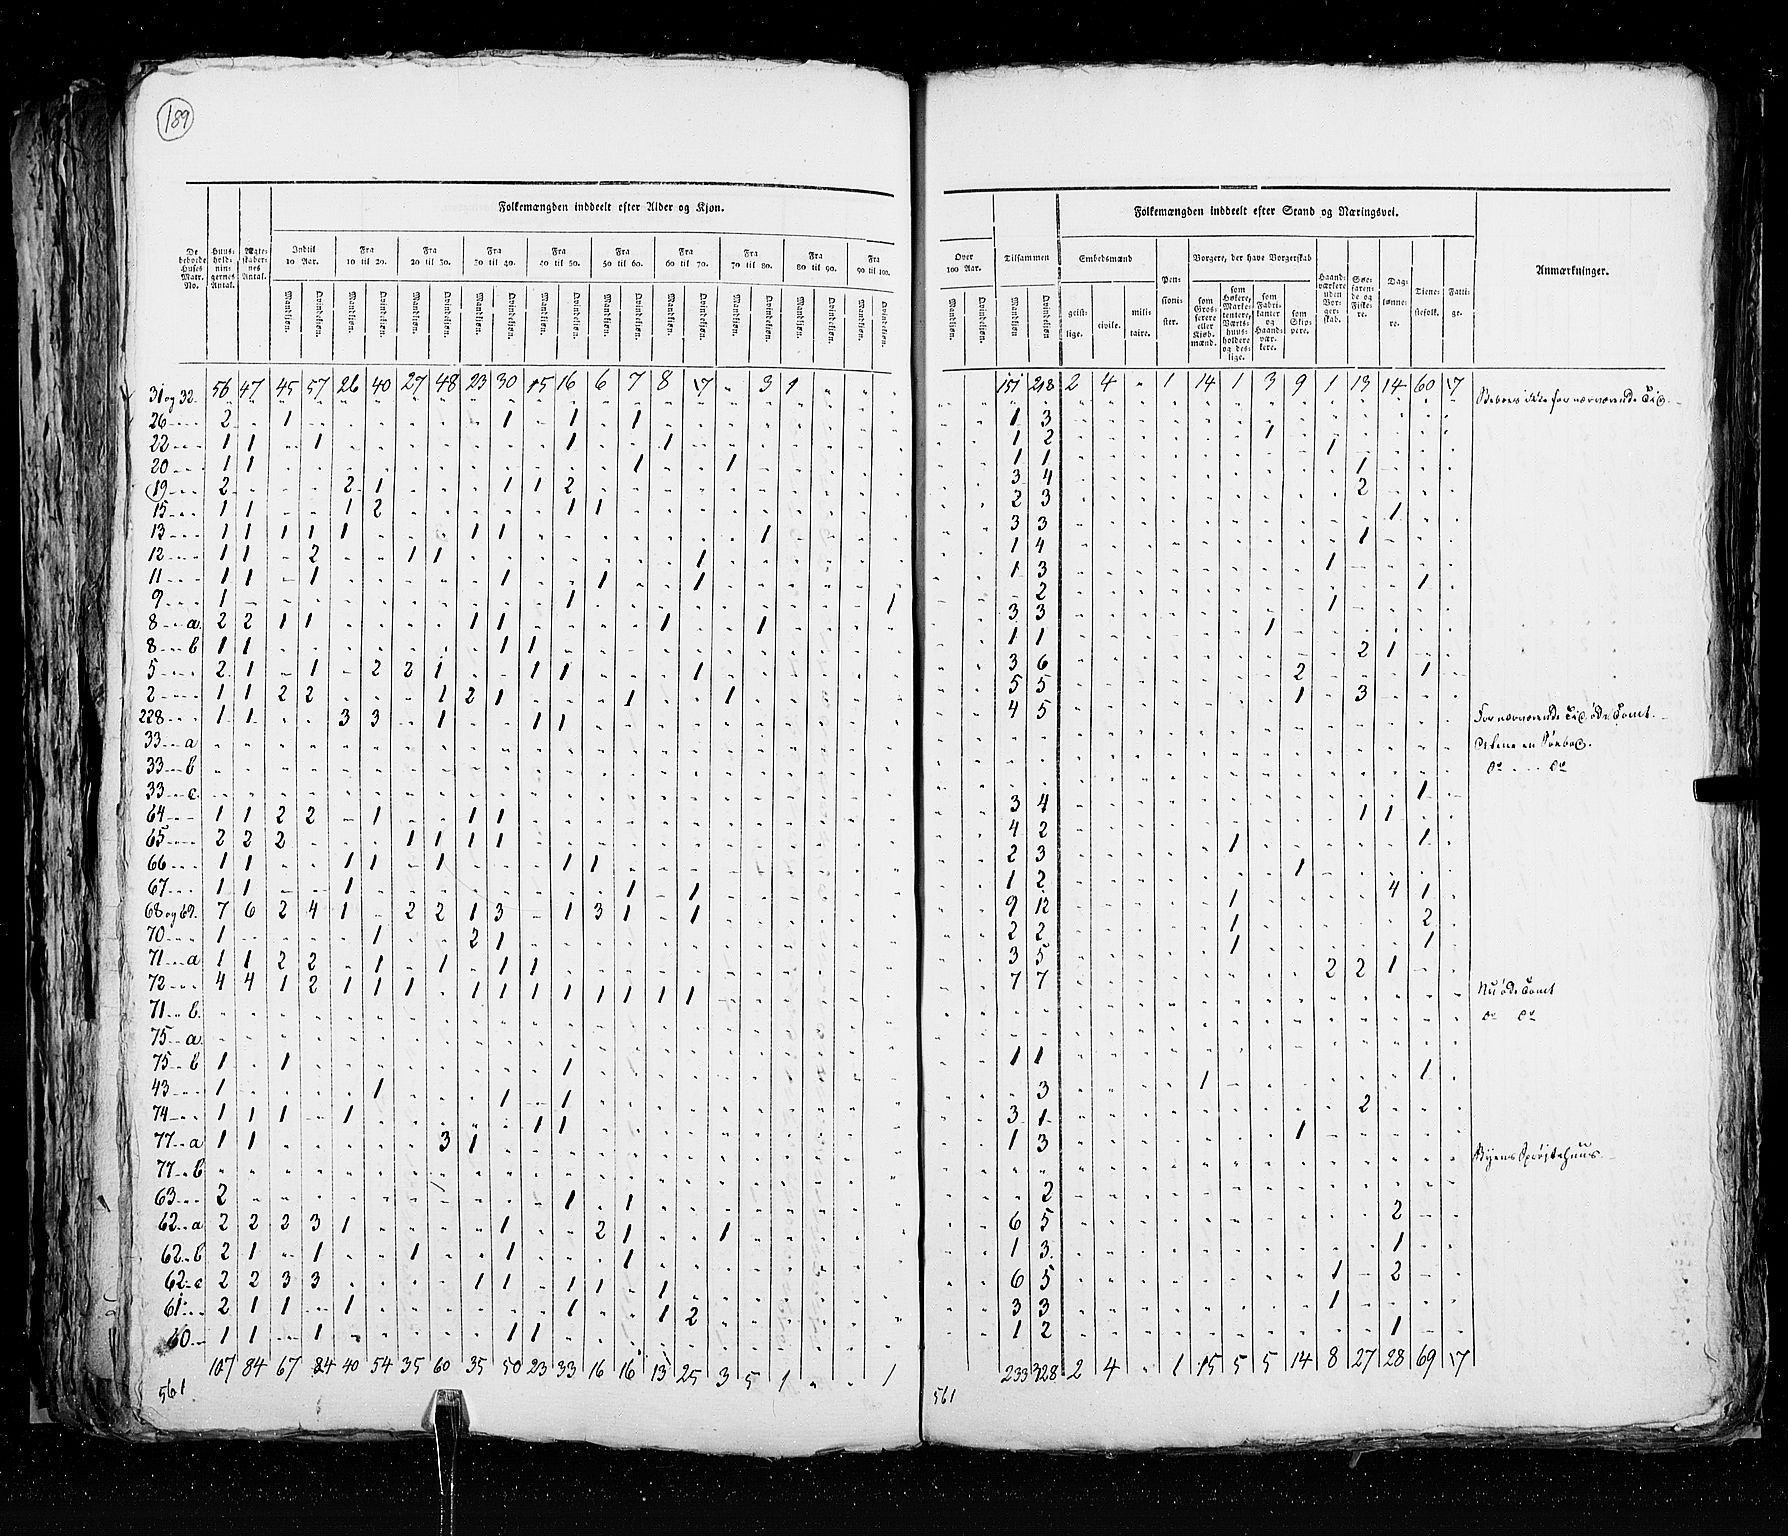 189
Folkemængden inddeelt efter Alder og Kjøn.
De beboede Huses Matr. No.
Huus-hold-nin-gernes Antal.
Ægte-skaber-nes Antal.
Indtil 10 Aar.
Fra 10 til 20.
Fra 20 til 30.
Fra 30 til 40.
Fra 40 til 50.
Fra 50 til 60.
Fra 60 til 70.
Fra 70 til 80.
Fra 80 til 90.
Fra 90 til 100.
Mandkjøn. Qvindekjøn. Mandkjøn. Qvindekjøn. Mandkjøn. Qvindekjøn. Mandkjøn. Qvindekjøn. Mandkjøn. Qvindekjøn. Mandkjøn. Qvindekjøn. Mandkjøn. Qvindekjøn. Mandkjøn. Qvindekjøn. Mandkjøn. Qvindekjøn. Mandkjøn. Qvindekjøn.
56 47 45 57 26 40 27 48 23 30 15 16 6 7 8 17 " 3 1
31 og 32
26 2 1 1 1 1
22 1 1 1 1 1
20 1 1 1 1
19 2 2 1 1 1 2
15 1 1 1 2 1 1
13 1 1 1 1 1 1 1 1
12 1 1 2 1 1 1
11 1 1 1 1 1 1
9 1 1 1
8 a 2 2 1 1 1 1 1 1
8 b 1 1 1 1
5 2 1 1 2 2 1 1 1 1
2 1 1 2 2 1 2 1 1 1
228 1 1 3 3 1 1 1
33 a
33 b
33 c
64 1 1 2 2 1 1 1
65 2 2 2 1 1 1 1
66 1 1 1 1 1 1 1
67 1 1 1 1 1
68 og 69 7 6 2 4 1 2 2 1 3 1 3 1 1
70 1 1 2 1
71 a 1 1 2 2 1 1 1 1
72 4 4 1 2 1 1 1 1 1 1 1 1 1 1 1
71 b
75 a
75 b 1 1 1
43 1 1 1 1
74 1 1 1 1 1 1
77 a 1 1 3 1
77 b
63 2 1 1
62 a 2 2 2 3 1 1 2 1 1
62 b 2 1 1 1 1 1
62 c 2 2 3 3 1 1 1 1 1
61 2 1 1 1 1 1 2
60 1 1 1 1 1
107 84 67 84 40 54 35 60 35 50 23 33 16 16 13 25 3 5 1 " " 1
561
Folkemængden inddeelt efter Stand og Næringsvei.
Over 100 Aar.
Tilsammen
Embedsmænd
Pen-sioni-ster.
Borgere, der have Borgerskab
Haand-værkere uden Bor-ger-skab.
Søe-farende og Fiske-re.
Dag-lønne-re.
Tiene-stefolk.
Fatti-ge.
Anmærkninger.
Mandkjøn. Qvindekjøn. Mandkjøn Qvindekjøn.
geist-lige. civile. mili-taire.
som Gros-serere eller Kjøb-mænd.
som Høkere, Marke-tentere, Værts-huus-holdere og des-lige.
som Fabri-kanter og Haand-vær-kere.
som Skip-pere.
151 218 2 4 " 1 14 1 3 9 1 13 14 60 17
1 3
1 2 1
1 1 1
3 4 1
2 3 2
3 3 1
1 4 1
1 3 1
2 1
3 3 1
1 1 1
3 6 2 1
5 5 2 1
4 5 1 3
3 4 1
4 2 1 1
2 3 1 1
1 2 1
9 12 1 4 1
2 2 1 2
3 5 1 1
7 7 2 2 1
1 1
3 1 1
3 1 2
1 3 1
2
6 5 2
1 3 1
6 5 1 2
3 3 1
1 2 1
Byens Sprøitehuus
233 328 2 4 " 1 15 5 5 14 8 27 28 69 17
561